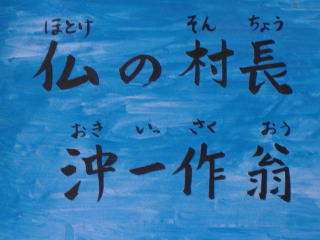 ほとけ そん ちょう
仏の村長
おき いっ さく おう
沖一作翁